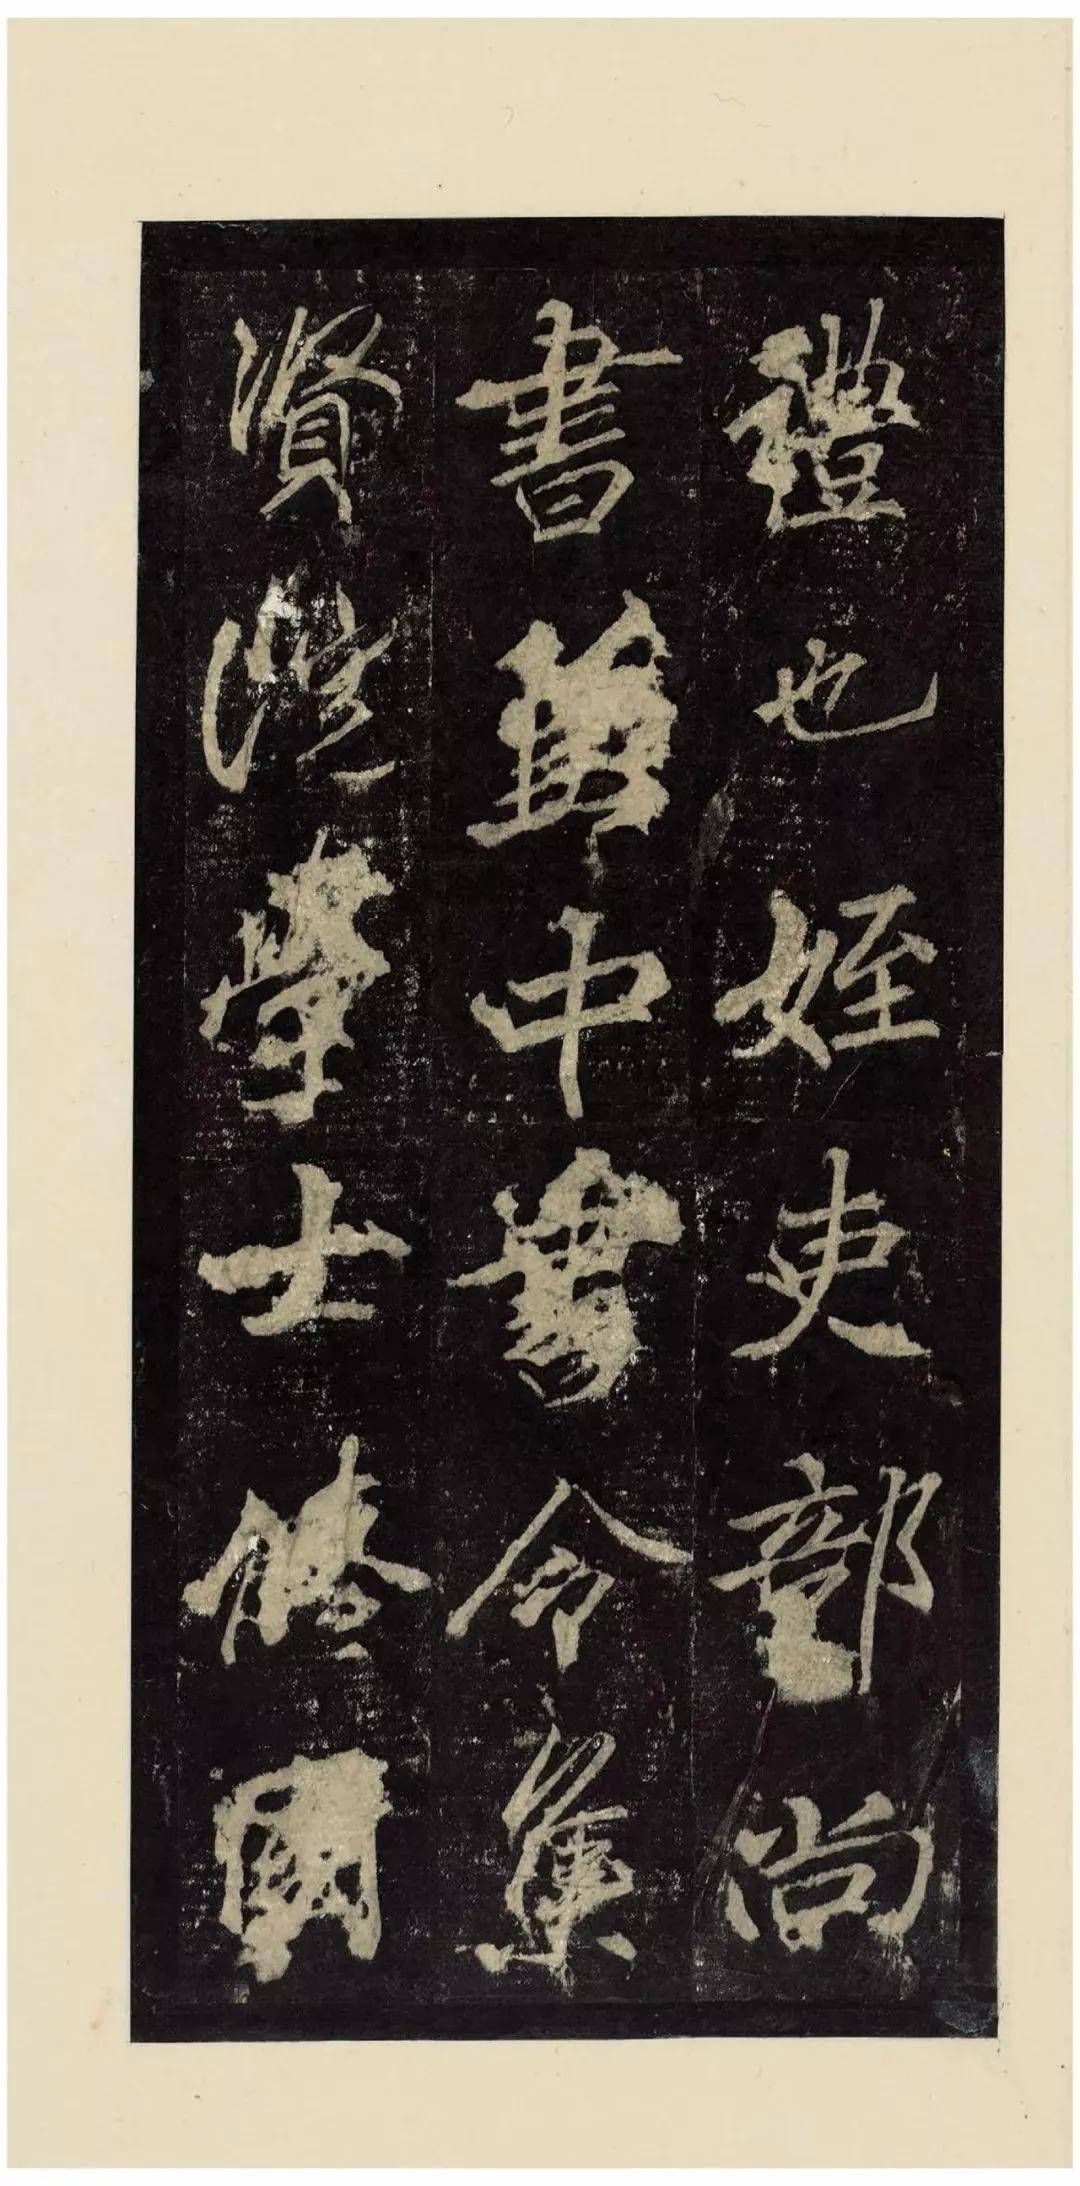 禮也姪吏部尚
書兼中書令集
賢院學士修國